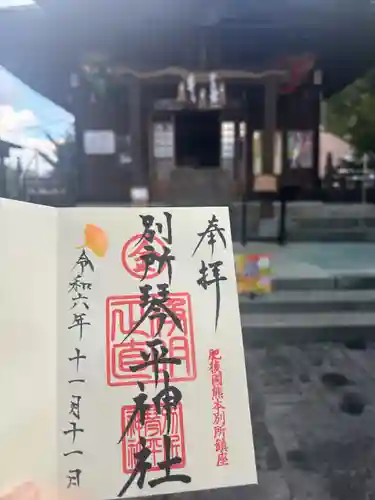 奉拝
肥後国熊本別所鎮座
別所琴平神社
令和六年十一月十一日